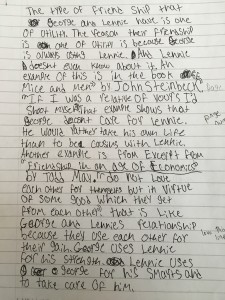 The type of Friend Ship that
George and Lennie have is one
of Utility. The reason their Friendship
is one of Utility is because George
is always using Lennie. And Lennie
doesnt even know about it. An
example of this is in the book
Mice and Men by John Steinbeck
"If I was a relative of yours I'd
Shoot myself" that example shows that
George doesnt care for Lennie.
He would rather take his own life
them to be cousins with Lennie.
Another example is from Excerpt from
Friendship in an age of Economics
by Todd May. do not Love
each other for but in Virtue
of some good which they get
From each other. that is like
George and Lennies relationship
because they use each other for
their gain. George uses Lennie
for his strength Lennie uses
George for his Smarts and
to take care of him.